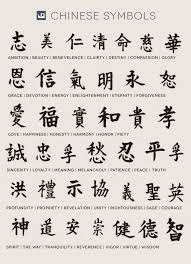 CHINESE SYMBOLS
志 美 仁 清 命 慈 華
AMBITION | BEAUTY | BENEVOLENCE | CLARITY | DESTINY | COMPASSION | GLORY
恩 信 氣 明 永 恕
GRACE | DEVOTION | ENERGY | ENLIGHTENMENT | ETERNITY | FORGIVENESS
愛 福 實 和 貴 孝
LOVE | HAPPINESS | HONESTY | HARMONY | HONOR | PIETY
誠 忠 孚 愁 忍
SINCERITY | LOYALTY | MEANING | MELANCHOLY | PATIENCE | PEACE | TRUTH
洪 禮 示 協 義 聖 英
PROFUNDITY | PROPRIETY | REVELATION | UNITY | RIGHTEOUSNESS | SAGE | COURAGE
神 道 安 崇 健 德 智
SPIRIT | THE WAY | TRANQUILITY | REVERENCE | VIGOR | VIRTUE | WISDOM